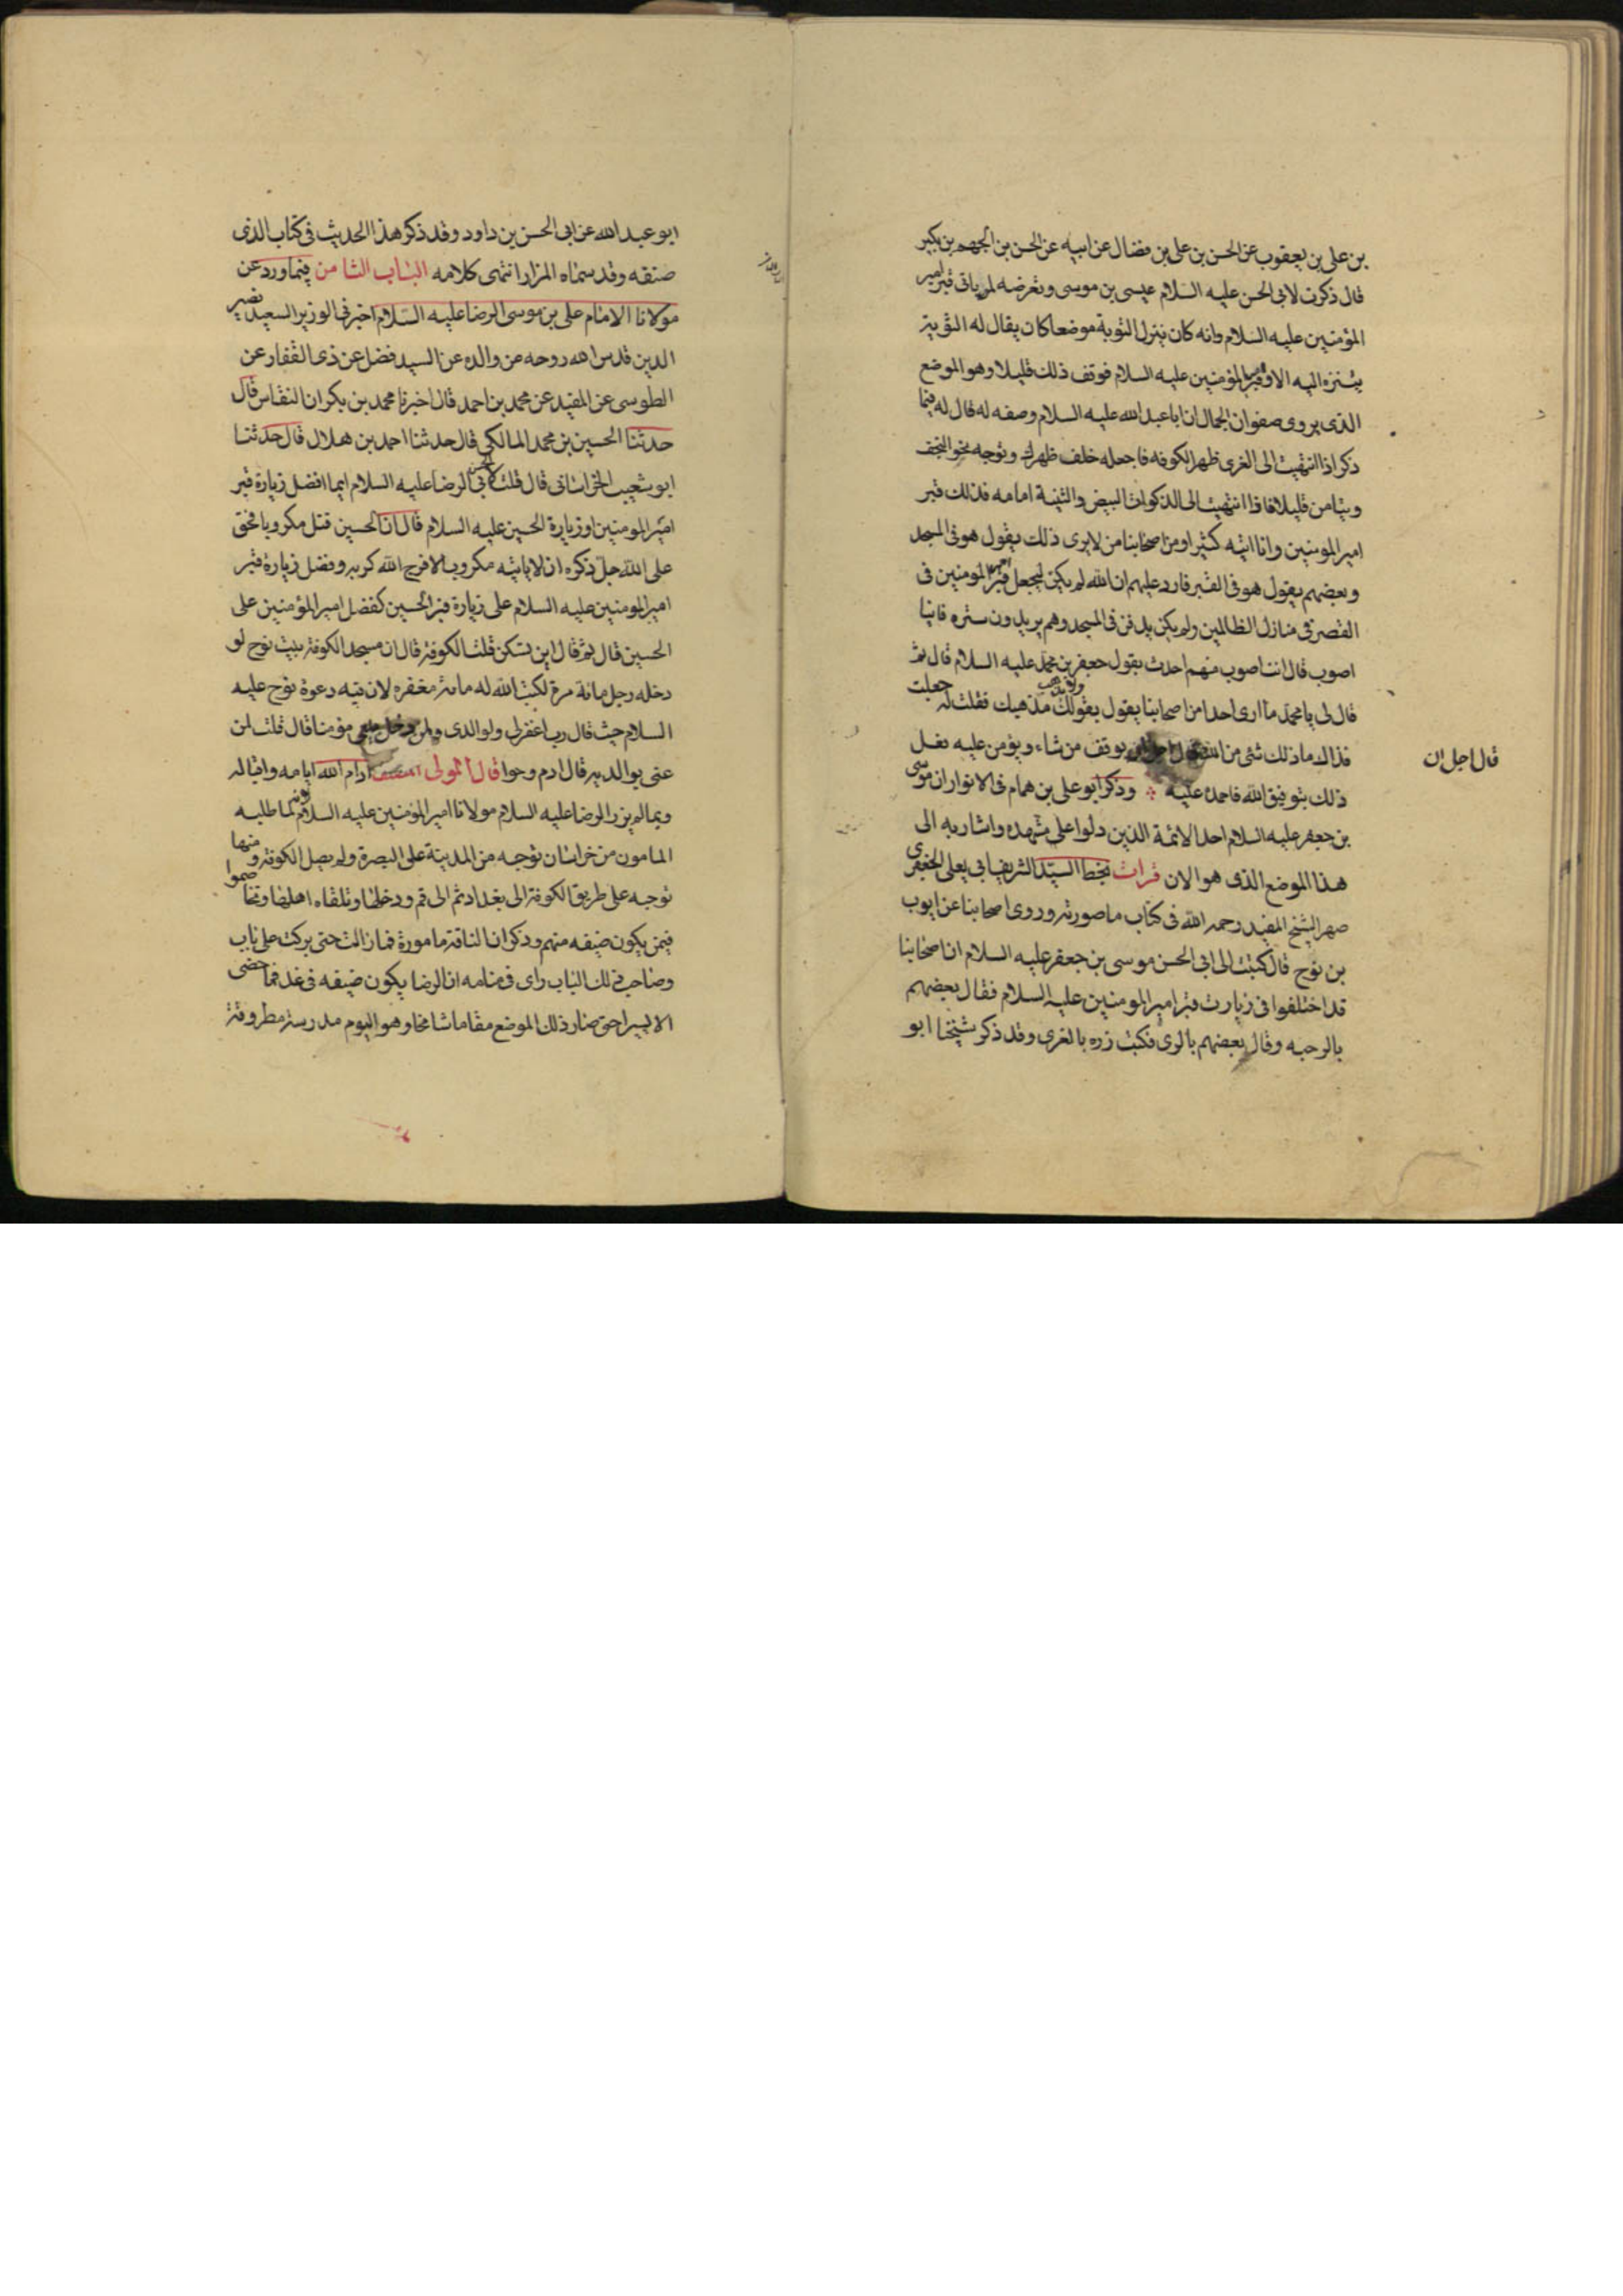 بن علی بن یعقوب عن الحسن بن علی بن فضال عن ابیه عن الحسن بن الجهم بن بکیر
قال ذکرت لابی الحسن علیه السلام عیسی بن موسی وتعرضه لمن یاتی قبر امیر
المؤمنین علیه السلام وانه کان ینزل الثویة موضعا کان یقال له الثویة
یتنزه الیه الا وقبر امیر المؤمنین علیه السلام فوق ذلک قلیلا وهو الموضع
الذی یروی صفوان الجمال ان اباعبد الله علیه السلام وصفه له قال له فیما
ذکر اذا انتهیت الی الغری ظهر الکوفه فاجعله خلف ظهرک وتوجه نحو النجف
وتیامن قلیلا فاذا انتهیت الی الذکوات البیض والثنیة امامه فذلک قبر
امیر المومنین وانا اتیه کثیرا ومن اصحابنا من لا یری ذلک یقول هو فی المسجد
وبعضهم یقول هو فی القصر فارد علیهم ان الله لم یکن لیجعل قبر امیر المومنین فی
القصر فی منازل الظالمین ولم یکن یدفن فی المسجد وهم یریدون ستره فاینا
اصوب قال انت اصوب منهم احدث بقول جعفر بن محمد علیه السلام قال ثم
قال لی یا محمد ما اری احدا من اصحابنا یقول بقولک ویذهب مذهبک فقلت له جعلت
فداک اما ذلک شئ من الله یوفق من شاء ویؤمن علیه فقل
قال اجل ان
ذلک بتوفیق الله فاحمده علیه وذکر ابو علی بن همام فی الانوار ان موسی
بن جعفر علیه السلام احد الائمة الذین دلوا علی مشهده واشار به الی
هذا الموضع الذی هو الان قرات بخط السید الشریف ابی یعلی الجعفری
صهر الشیخ المفید رحمه الله فی کتاب ما صورته وروی اصحابنا عن ایوب
بن نوح قال کتبت الی ابی الحسن موسی بن جعفر علیه السلام ان اصحابنا
قد اختلفوا فی زیارت قبر امیر المومنین علیه السلام فقال بعضهم
بالرحبه وقال بعضهم بالری فکتب زره بالغری وقد ذکر شیخنا ابو
ابو عبد الله عن ابی الحسن بن داود وقد ذکر هذا الحدیث فی کتاب الذی
صنفه وقد سماه المزار انتهی کلامه الباب الثامن فیما ورد عن
مولانا الامام علی بن موسی الرضا علیه السلام اخبرنی الوزیر السعید نصیر
الدین قدس الله روحه عن والده عن السید فضل عن ذی الفقار عن
الطوسی عن المفید عن محمد بن احمد قال اخبرنا محمد بن بکران النقاس قال
حدثنا الحسین بن محمد المالکی قال حدثنا احمد بن هلال قال حدثنا
ابو شعیب الخراسانی قال قلت لابی الحسن الرضا علیه السلام ایما افضل زیارة قبر
امیر المومنین او زیارة الحسین علیه السلام قال ان الحسین قتل مکروبا فحق
علی الله جل ذکره ان لا یاتیه مکروب الا فرج الله کربه وفضل زیارة قبر
امیر المومنین علیه السلام علی زیارة قبر الحسین کفضل امیر المؤمنین علی
الحسین قال ثم قال این تسکن قلت الکوفة قال ان مسجد الکوفة بیت نوح لو
دخله رجل مائة مرة لکتب الله له مائة مغفره لان فیه دعوة نوح علیه
السلام حیث قال رب اغفر لی ولوالدی ولمن دخل بیتی مؤمنا قال قلت لمن
عنی بوالدیه قال ادم وحوا قال المولی المصنف ادام الله ایامه واقباله
وبما لم یزر الرضا علیه السلام مولانا امیر المؤمنین علیه السلام لانه لما طلبه
المامون من خراسان توجه من المدینة علی البصرة ولم یصل الکوفة ومنها
توجه علی طریق الکوفة الی بغداد ثم الی قم ودخلها وتلقاه اهلها وتخاصموا
فیمن یکون ضیفه منهم وذکر ان الناقة مامورة فما زالت حتی برکت علی باب
وصاحب ذلک الباب رای فی منامه ان الرضا یکون ضیفه فی غد فما مضی
الا یسیرا حتی صار ذلک الموضع مقاما شامخا وهو الیوم مدرسة مطروقة